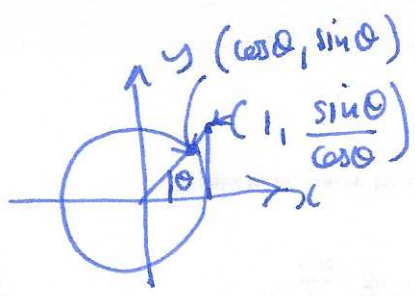 y (cosθ, sinθ)
(1, sinθ/cosθ)
θ
x